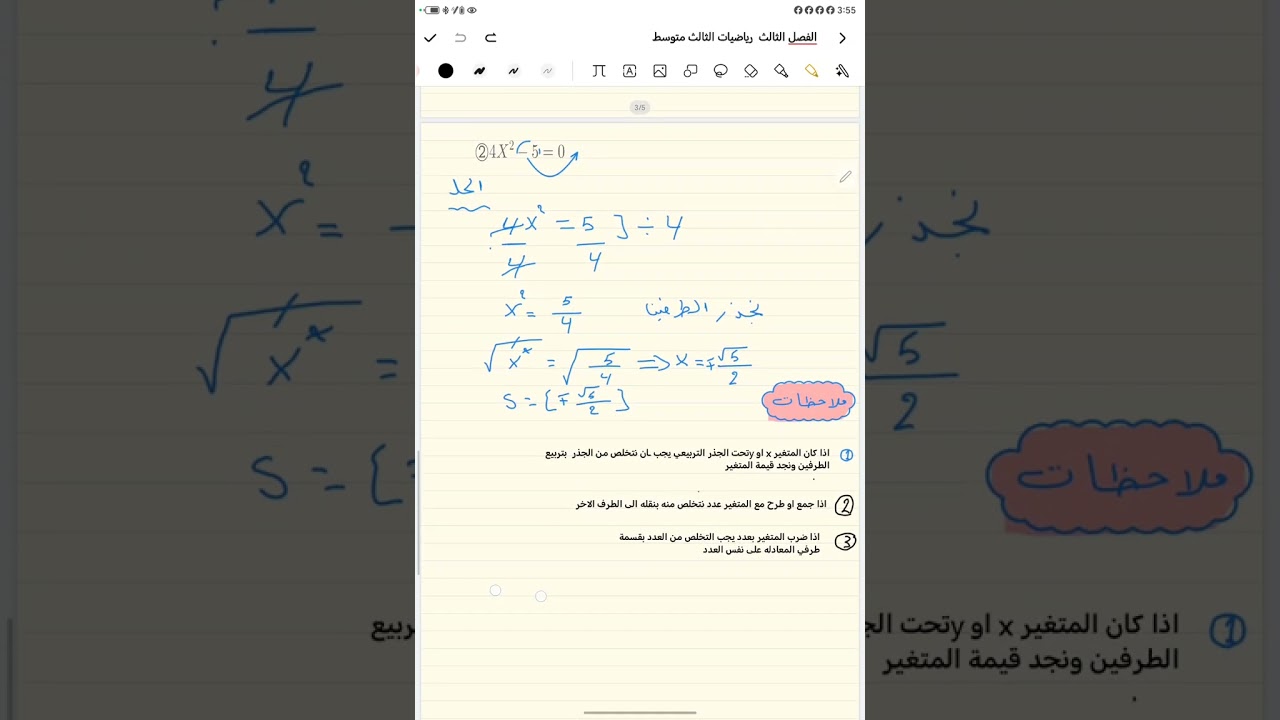 3:55
الفصل الثالث رياضيات الثالث متوسط
3/5
②4X² − 5 = 0
الحل
4x² = 5 ] ÷ 4
4 4
x² = 5/4 نجذر الطرفين
√x² = √5/4 ⇒ x = ∓√5/2
S = { ∓ √5/2 }
ملاحظات
① اذا كان المتغير x او yتحت الجذر التربيعي يجب ـان نتخلص من الجذر بتربيع
الطرفين ونجد قيمة المتغير
② اذا جمع او طرح مع المتغير عدد نتخلص منه بنقله الى الطرف الاخر
③ اذا ضرب المتغير بعدد يجب التخلص من العدد بقسمة
طرفي المعادله على نفس العدد